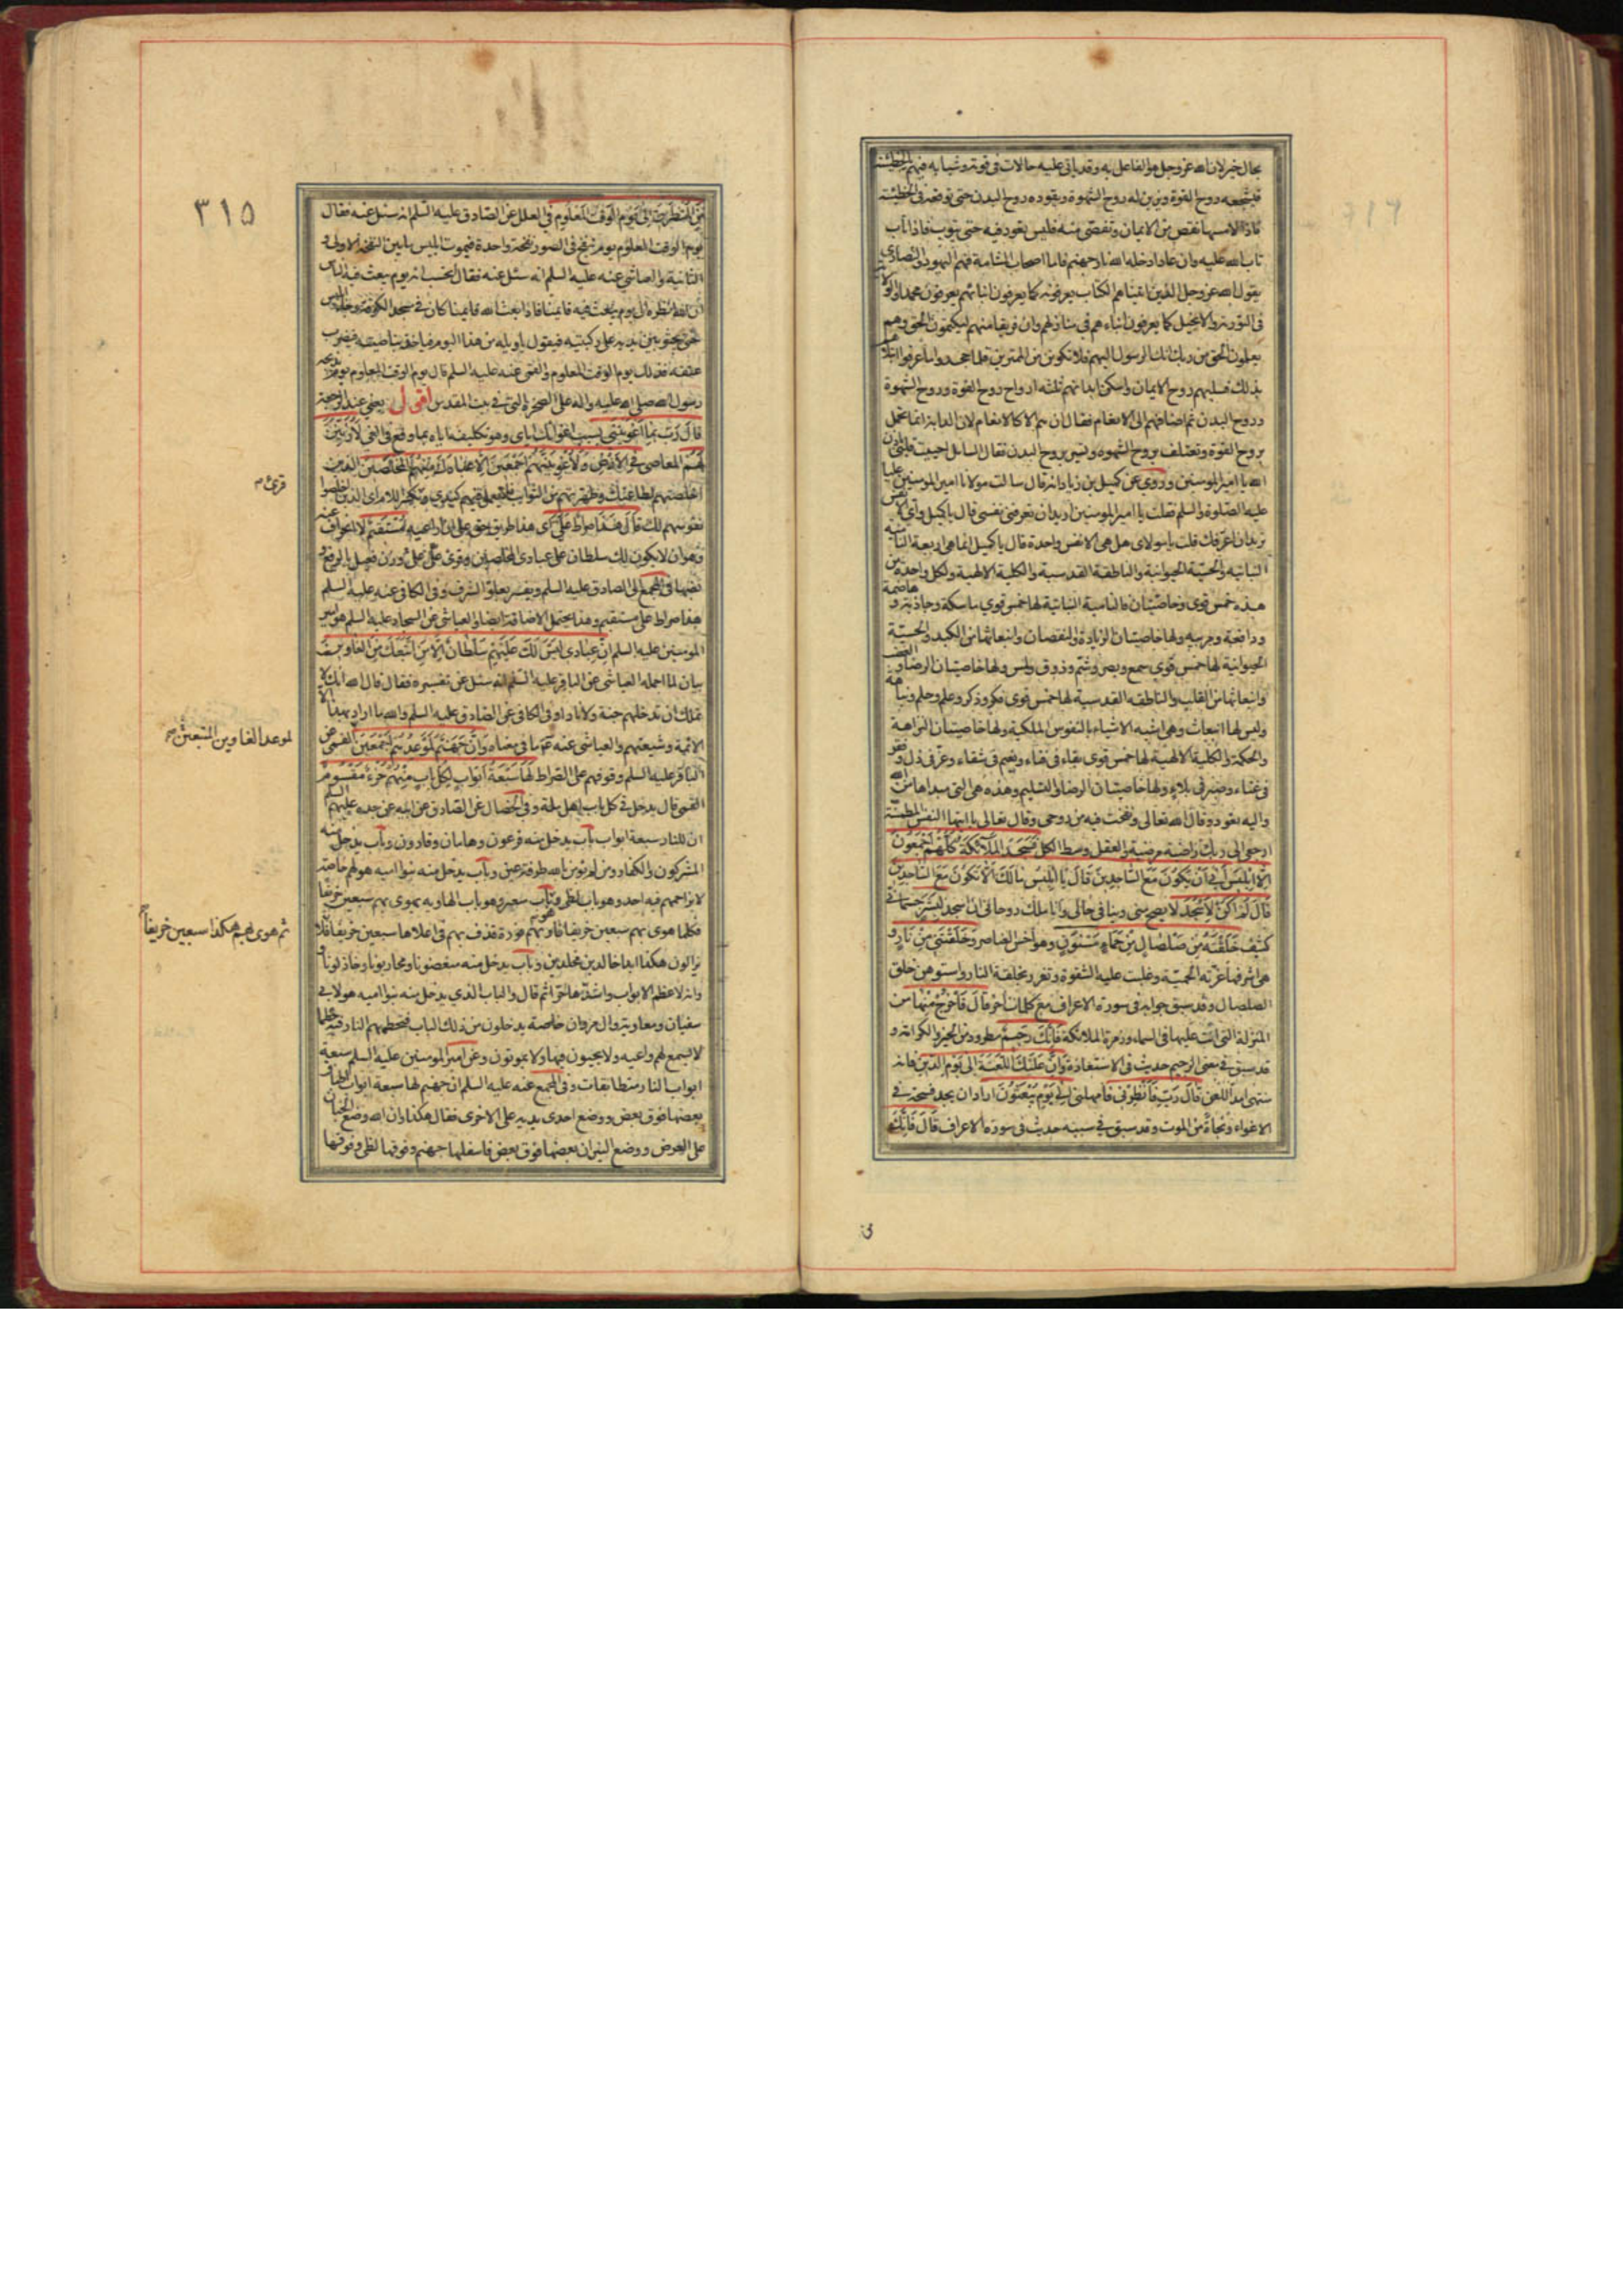 بحال خير لان الله عز وجل هو الفاعل به وقد ياتى عليه حالات فى قوته وشبابه فيهم بالخطيئة
فيشجعه روح القوة ويزين له روح الشهوة ويقوده روح البدن حتى توقعه فى الخطيئة
فاذا لامسها نقص من الايمان وتفصى منه فليس يعود فيه حتى يتوب فاذا تاب
تاب الله عليه وان عاد ادخله الله نار جهنم فاما اصحاب المشامة فهم اليهود والنصارى
يقول الله عز وجل الذين اتيناهم الكتاب يعرفونه كما يعرفون ابنائهم يعرفون محمدا والولاية
فى التورية والانجيل كما يعرفون ابناءهم فى منازلهم وان فريقا منهم ليكتمون الحق وهم
يعلمون الحق من ربك انك الرسول اليهم فلا تكونن من الممترين فلما جحدوا ما عرفوا ابتلاهم
بذلك فسلبهم روح الايمان واسكن ابدانهم ثلثه ارواح روح القوة وروح الشهوة
وروح البدن ثم اضافهم الى الانعام فقال ان هم الا كالانعام لان الدابة انما تحمل
بروح القوة وتعتلف بروح الشهوه وتسير بروح البدن فقال السايل احييت قلبى باذن
الله يا امير المومنين وروي عن كميل بن زياد انه قال سالت مولانا امير المومنين عليا
عليه الصلوة والسلم فقلت يا امير المومنين اريد ان تعرفنى نفسى قال يا كميل واى الانفس
تريد ان اعرفك قلت يا مولاى هل هى الا نفس واحدة قال يا كميل انما هى اربعة النامية
النباتيه والحسية الحيوانية والناطقة القدسية والكلية الالهية ولكل واحدة من
هذه خمس قوى وخاصيتان فالنامية النباتية لها خمس قوى ماسكة وجاذبة وهاضمة
ودافعة ومربيه ولها خاصيتان الزيادة والنقصان وانبعاثها من الكبد والحسية
الحيوانية لها خمس قوى سمع وبصر وشم وذوق ولمس ولها خاصيتان الرضا والغضب
وانبعاثها من القلب والناطقه القدسية لها خمس قوى فكر وذكر وعلم وحلم ونباهة
وليس لها انبعاث وهى اشبه الاشياء بالنفوس الملكية ولها خاصيتان النزاهة
والحكمة والكلية الالهية لها خمس قوى بقاء فى فناء ونعيم فى شقاء وعز فى ذل وفقر
فى غناء وصبر فى بلاء ولها خاصيتان الرضا والتسليم وهذه هى التى مبداها من الله
واليه تعود وقال الله تعالى ونفخت فيه من روحى وقال تعالى يا ايتها النفس المطمئنة
ارجعى الى ربك راضية مرضية والعقل وسط الكل فَسَجَدَ المَلَآئكَةُ كُلُّهُمْ اَجْمَعُونَ
اِلّا اِبْلِيسَ اَبى اَنْ يَكُونَ مَعَ السّاجِدِينَ قالَ يا اِبْلِيسُ مالَكَ اَلّا تَكُونَ مَعَ السّاجِدِينَ
قالَ لَمْ اَكُنْ لِاَسْجُدَ لا يصح منى وينافى حالى وانا ملك روحانى ان اسجد لِبَشَرٍ جسمانى
كثيف خَلَقْتَهُ مِنْ صَلْصالٍ مِنْ حَمَاءٍ مَسْنُونٍ وهو اخس العناصر وخلقتنى من نار و
هى اشرفها غرّته الحمية وغلبت عليه الشقوة وتعزز بخلقة النار واستوهن خلق
الصلصال وقد سبق جوابه فى سورة الاعراف مع كلمات اخر قالَ فَاخْرُجْ مِنْها من
المنزلة التى انت عليها فى السماء وزمرة الملائكة فَاِنَّكَ رَجِيمٌ مطرود من الخير والكرامة و
قد سبق فى معنى الرجيم حديث فى الاستعاذة وَاِنَّ عَلَيْكَ اللَّعْنَةَ اِلى يَوْمِ الدّينِ فانه
منتهى امد اللعن قالَ رَبِّ فَاَنْظِرْنى فامهلنى اِلى يَوْمِ يُبْعَثُونَ اراد ان يجد فسحة فى
الاغواء ونجاة من الموت وقد سبق فى سببه حديث فى سورة الاعراف قالَ فَاِنَّكَ
٣١٥
مِنَ الْمُنْظَرِينَ اِلى يَوْمِ الوَقْتِ المَعْلُومِ فى العلل عن الصادق عليه السلم انه سئل عنه فقال
يوم الوقت المعلوم يوم ينفخ فى الصور نفخة واحدة فيموت ابليس ما بين النفخة الاولى و
الثانية والعياشى عنه عليه السلم انه سئل عنه فقال اتحسب انه يوم يبعث فيه الناس
ان الله انظره الى يوم يبعث فيه قائمنا فاذا بعث الله قائمنا كان فى مسجد الكوفة وجاء ابليس
حتى يجثو بين يديه على ركبتيه فيقول يا ويله من هذا اليوم فياخذ بناصيته فيضرب
عنقه فذلك يوم الوقت المعلوم والقمى عنه عليه السلم قال يوم الوقت المعلوم يوم يذبحه
رسول الله صلى الله عليه واله على الصخرة التى فى بيت المقدس اقول يعنى عند الرجعة
قالَ رَبِّ بِما اَغْوَيْتَنى بسبب اغوائك اياى وهو تكليفه اياه بما وقع فى الغي لَاُزَيِّنَنَّ
لَهُمْ المعاصى فِى الاَرْضِ وَلَاُغْوِيَنَّهُمْ اَجْمَعِينَ اِلّا عِبادَكَ مِنْهُمُ الْمُخْلَصِينَ الذين
اخلصتهم لطاعتك وطهرتهم من الشوائب فلا يعمل فيهم كيدى وبكسر اللام اى الذين اخلصوا
قرئ م
نفوسهم لك قالَ هذا صِراطٌ عَلَىَّ هذا طريق حق على ان اراعيه مُسْتَقِيمٌ لا انحراف عنه
وهو ان لا يكون لك سلطان على عبادى المخلصين وقرئ علىّ على وزن فعيل بالرفع و
نسبها فى المجمع الى الصادق عليه السلم ويفسر بعلو الشرف وفى الكافى عنه عليه السلم
هذا صراط على مستقيم وهذا يحتمل الاضافة ايضا والعياشى عن السجاد عليه السلم هو امير
المومنين عليه السلم اِنَّ عِبادى لَيْسَ لَكَ عَلَيْهِمْ سُلْطانٌ اِلّا مَنِ اتَّبَعَكَ مِنَ الغاوِينَ
بيان لما اجمله العياشى عن الباقر عليه السلم انه سئل عن تفسيره فقال قال الله انك لا
تملك ان تدخلهم جنة ولا نارا وفى الكافى عن الصادق عليه السلم والله ما اراد بهذا الا
الائمة وشيعتهم والعياشى عنه ما فى معناه وَاِنَّ جَهَنَّمَ لَمَوْعِدُهُمْ اَجْمَعِينَ القمى عن
لموعد الغاوين المتبعين
الباقر عليه السلم وقوفهم على الصراط لَها سَبْعَةُ اَبْوابٍ لِكُلِّ بابٍ مِنْهُمْ جُزْءٌ مَقْسُومٌ
القمى قال يدخل فى كل باب اهل ملة وفى الخصال عن الصادق عن ابيه عن جده عليهم السلم
ان للنار سبعة ابواب باب يدخل منه فرعون وهامان وقارون وباب يدخل منه
المشركون والكفار ومن لم يؤمن بالله طرفة عين وباب يدخل منه بنوا اميه هو لهم خاصة
لا يزاحمهم فيه احد وهو باب لظى وباب سعير وهو باب الهاويه يهوى بهم سبعين خريفا
ثم هوى بهم هكذا سبعين خريفا
فكلما هوى بهم سبعين خريفا فار بهم فورة قذف بهم فى اعلاها سبعين خريفا فلا
يزالون هكذا ابدا خالدين مخلدين وباب يدخل منه مبغضونا ومحاربونا وخاذلونا و
وانه لاعظم الابواب واشدها حرا ثم قال والباب الذي يدخل منه بنوا اميه هو لابى
سفيان ومعاوية وال مروان خاصة يدخلون من ذلك الباب فتحطمهم النار فيه حطما
لا يسمع لهم واعيه ولا يحيون فيها ولا يموتون وعن امير المومنين عليه السلم سبعة
ابواب النار متطابقات وفى المجمع عنه عليه السلم ان جهنم لها سبعة ابواب اطباق
بعضها فوق بعض ووضع احدى يديه على الاخرى فقال هكذا وان الله وضع الجنان
على العرض ووضع النيران بعضها فوق بعض فاسفلها جهنم وفوقها لظى وفوقها